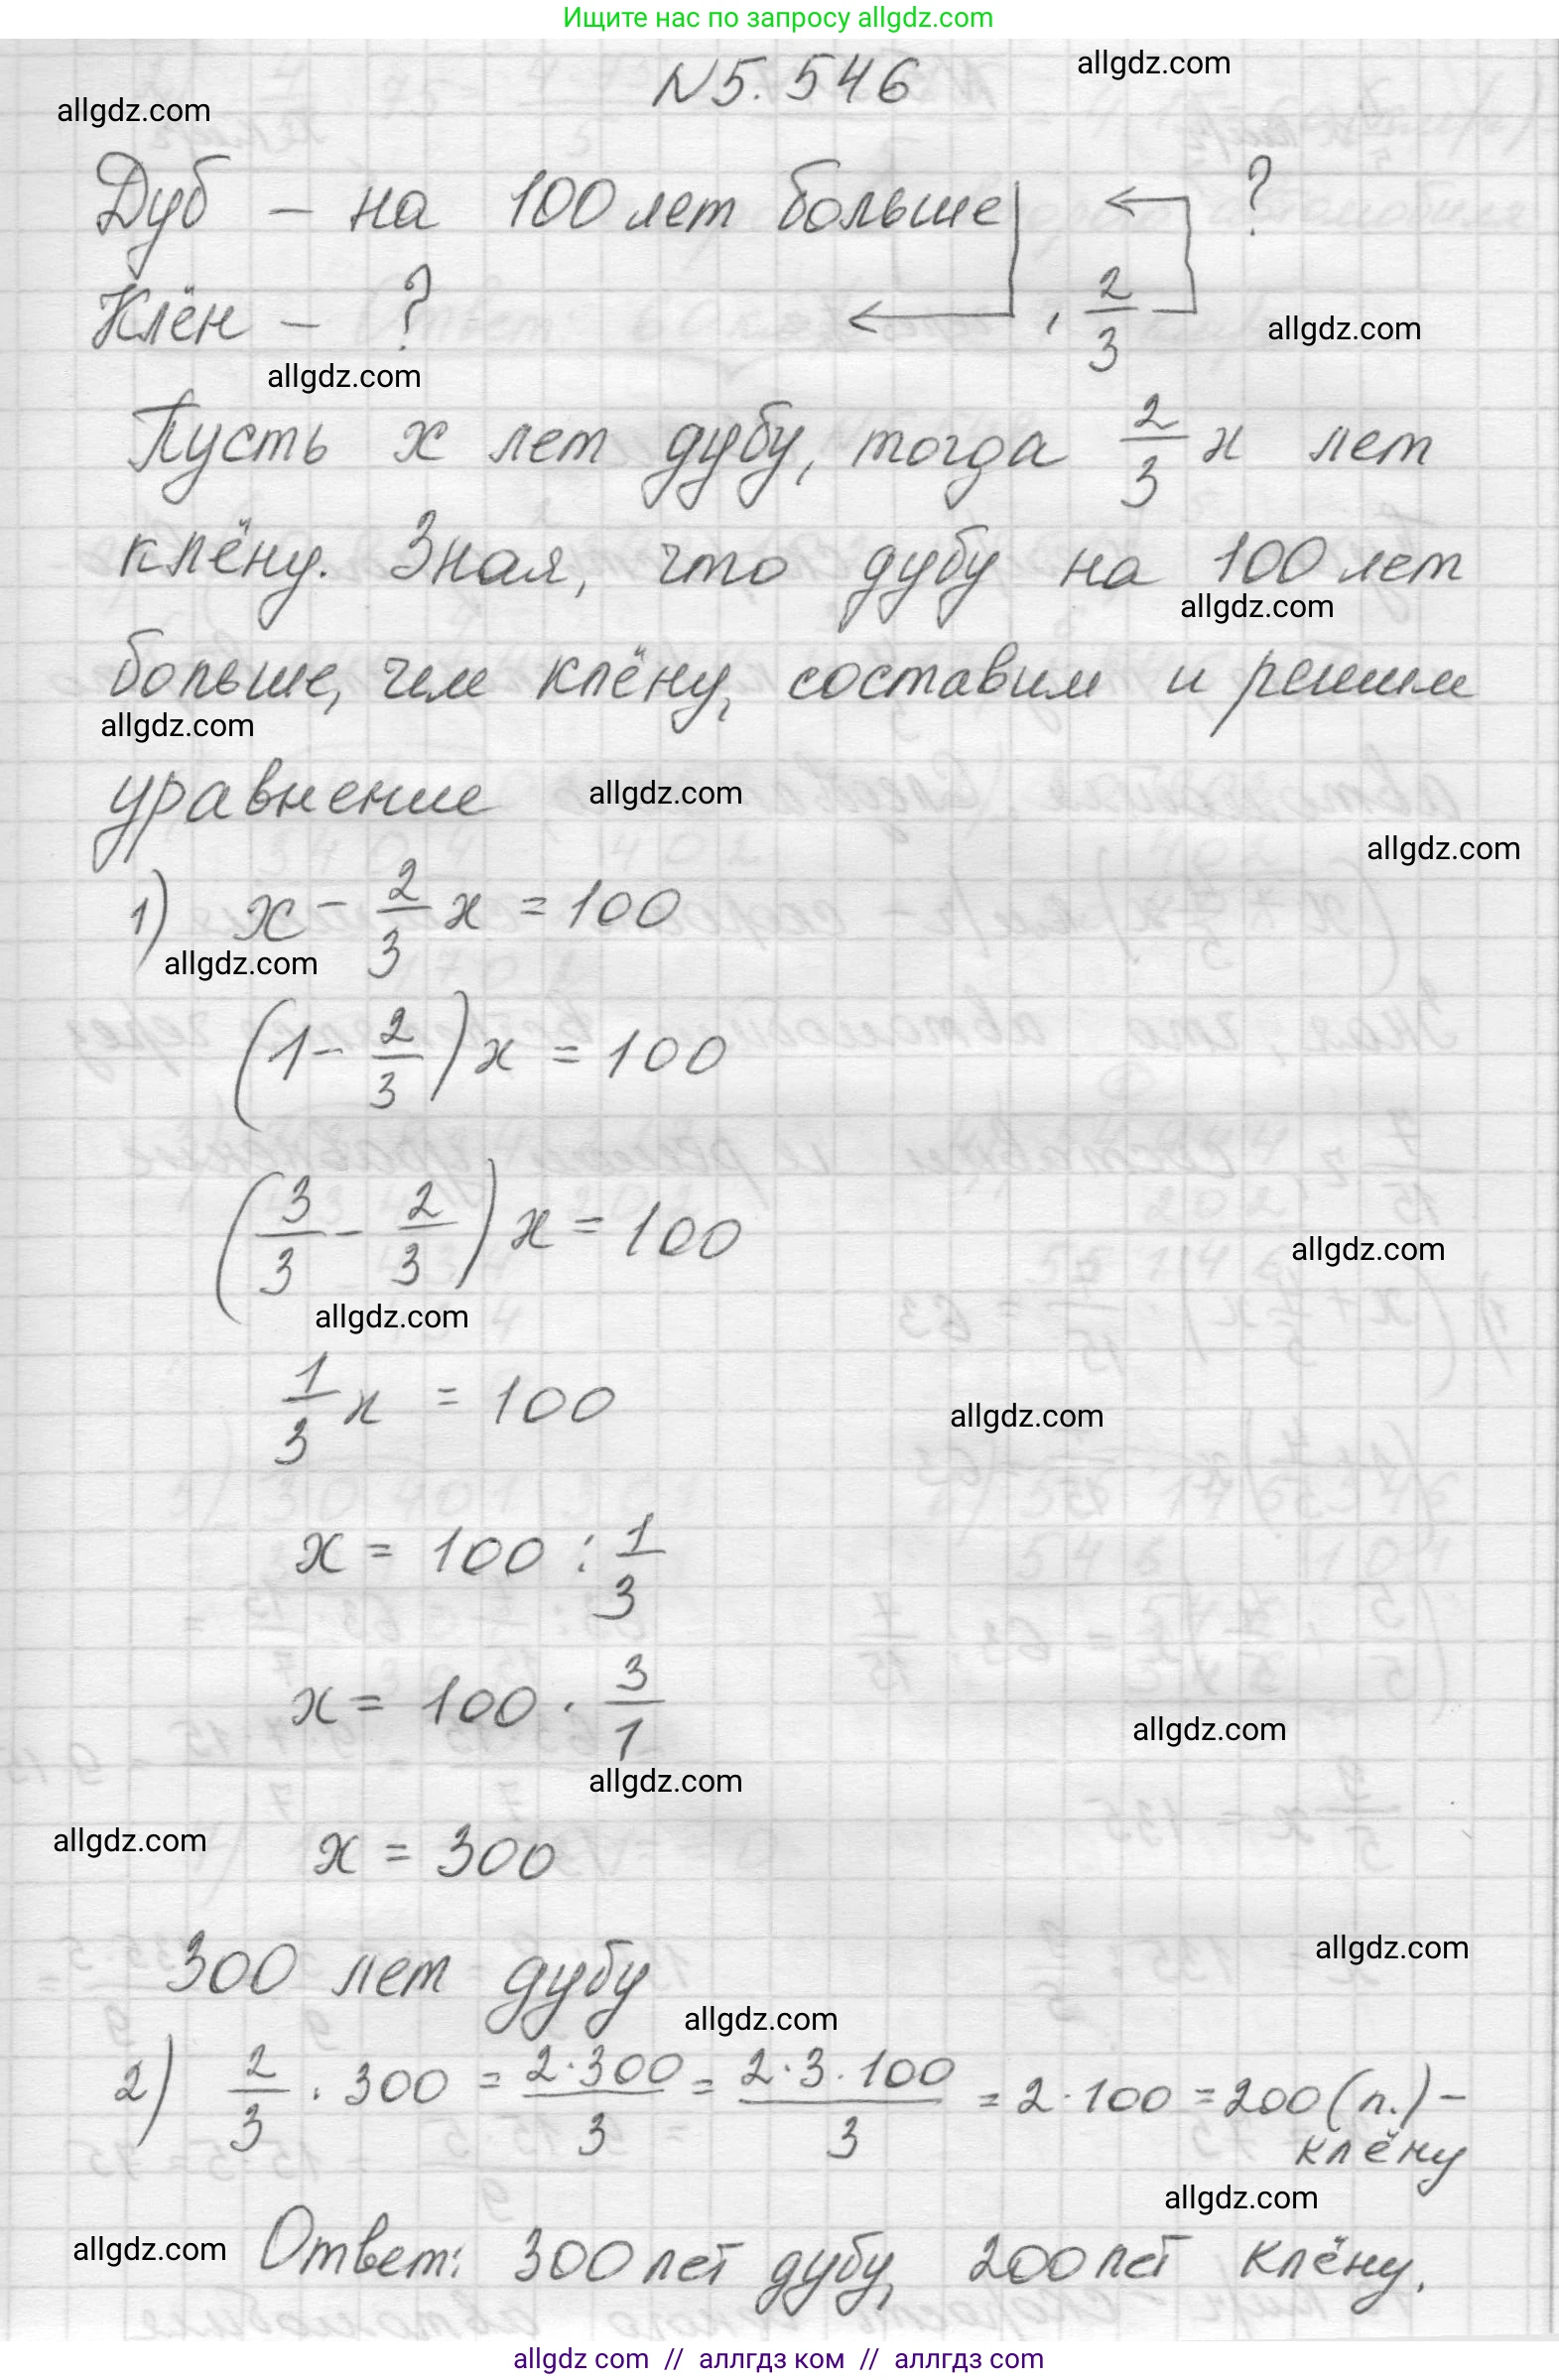 Ищите нас по запросу allgdz.com
N 5. 546
allgdz.com
allgdz.com
Дуб – на 100 лет больше ?
Клён – ? , 2/3
allgdz.com
allgdz.com
Пусть x лет дубу, тогда 2/3 x лет
клёну. Зная, что дубу на 100 лет
allgdz.com
больше, чем клёну, составим и решим
allgdz.com
уравнение
allgdz.com
allgdz.com
1) x - 2/3 x = 100
allgdz.com
(1 - 2/3) x = 100
(3/3 - 2/3) x = 100
allgdz.com
allgdz.com
1/3 x = 100
allgdz.com
x = 100 : 1/3
x = 100 · 3/1
allgdz.com
allgdz.com
allgdz.com
x = 300
300 лет дубу
allgdz.com
allgdz.com
2) 2/3 · 300 = 2·300/3 = 2·3·100/3 = 2·100 = 200 (л.) –
клёну
allgdz.com
allgdz.com
Ответ: 300 лет дубу, 200 лет клёну.
allgdz com // аллгдз ком // аллгдз com